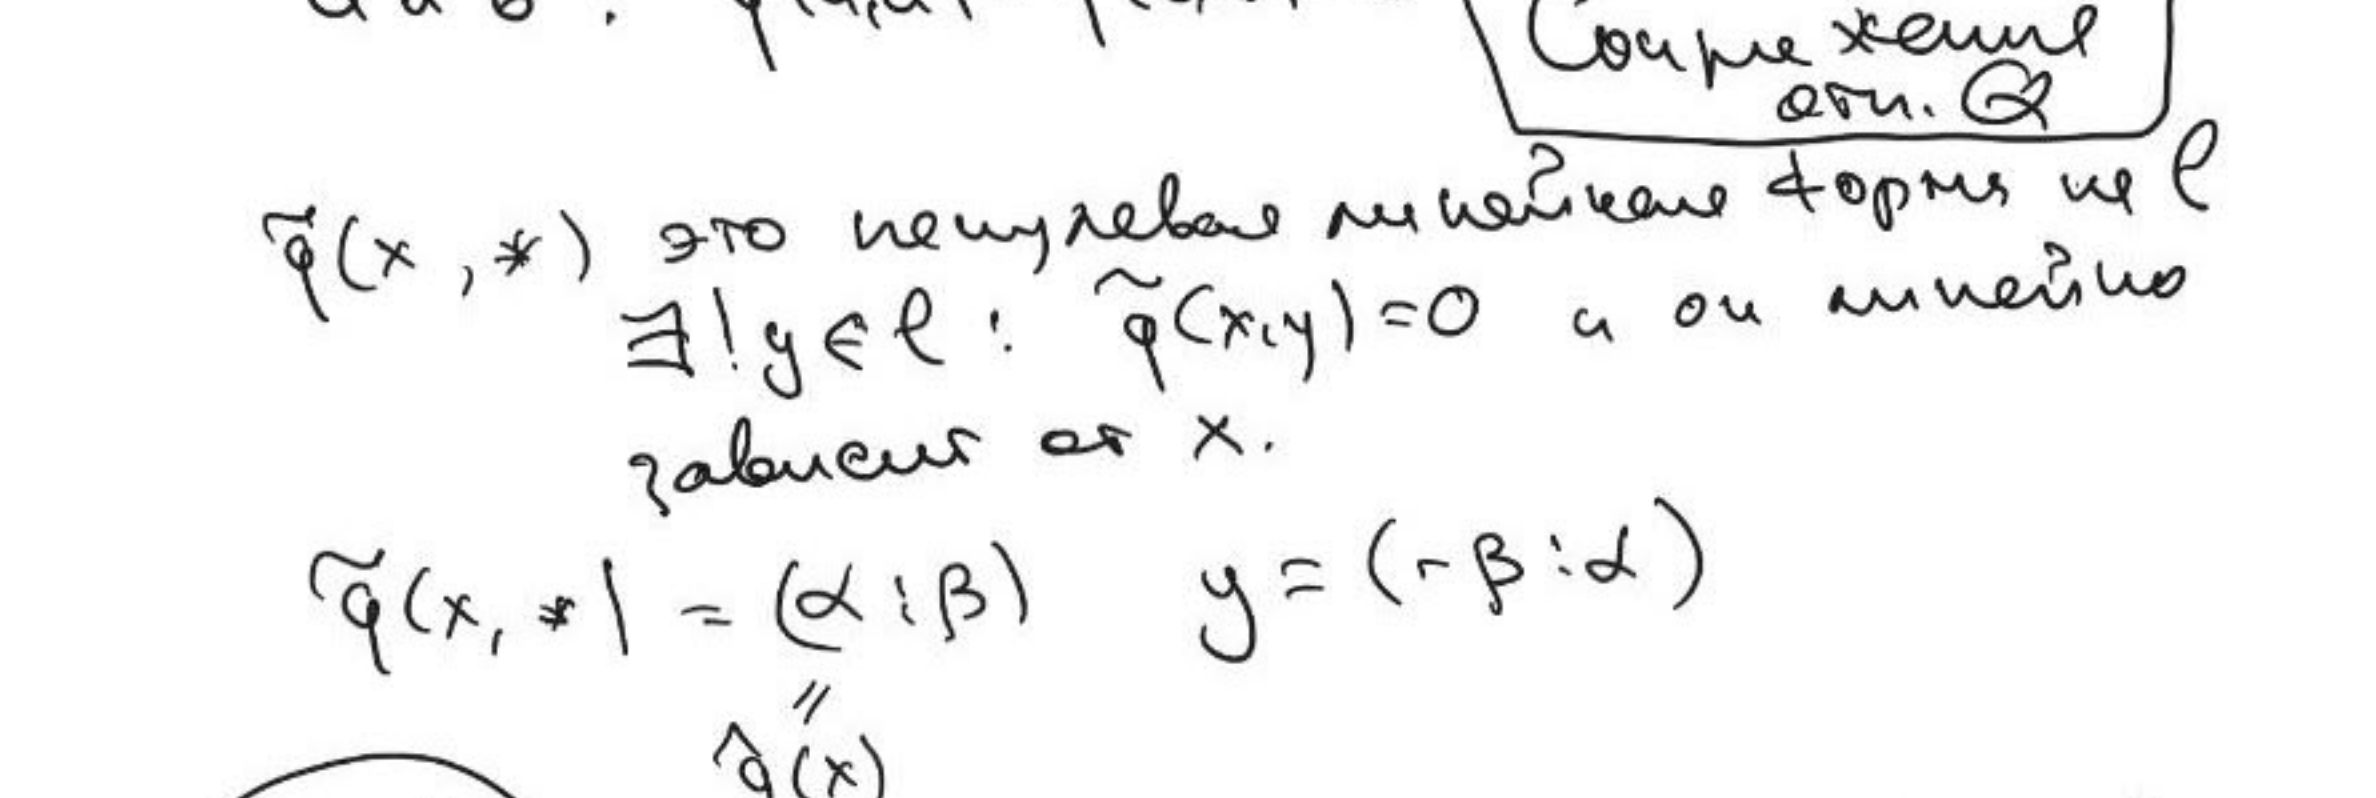 Сопряжение
отн. Q
q̃(x, *) это ненулевая линейная форма на ℓ
∃! y ∈ ℓ : q̃(x,y)=0 и он линейно
зависит от x.
q̃(x, *) = (α : β) y = (-β : α)
=
q̂(x)